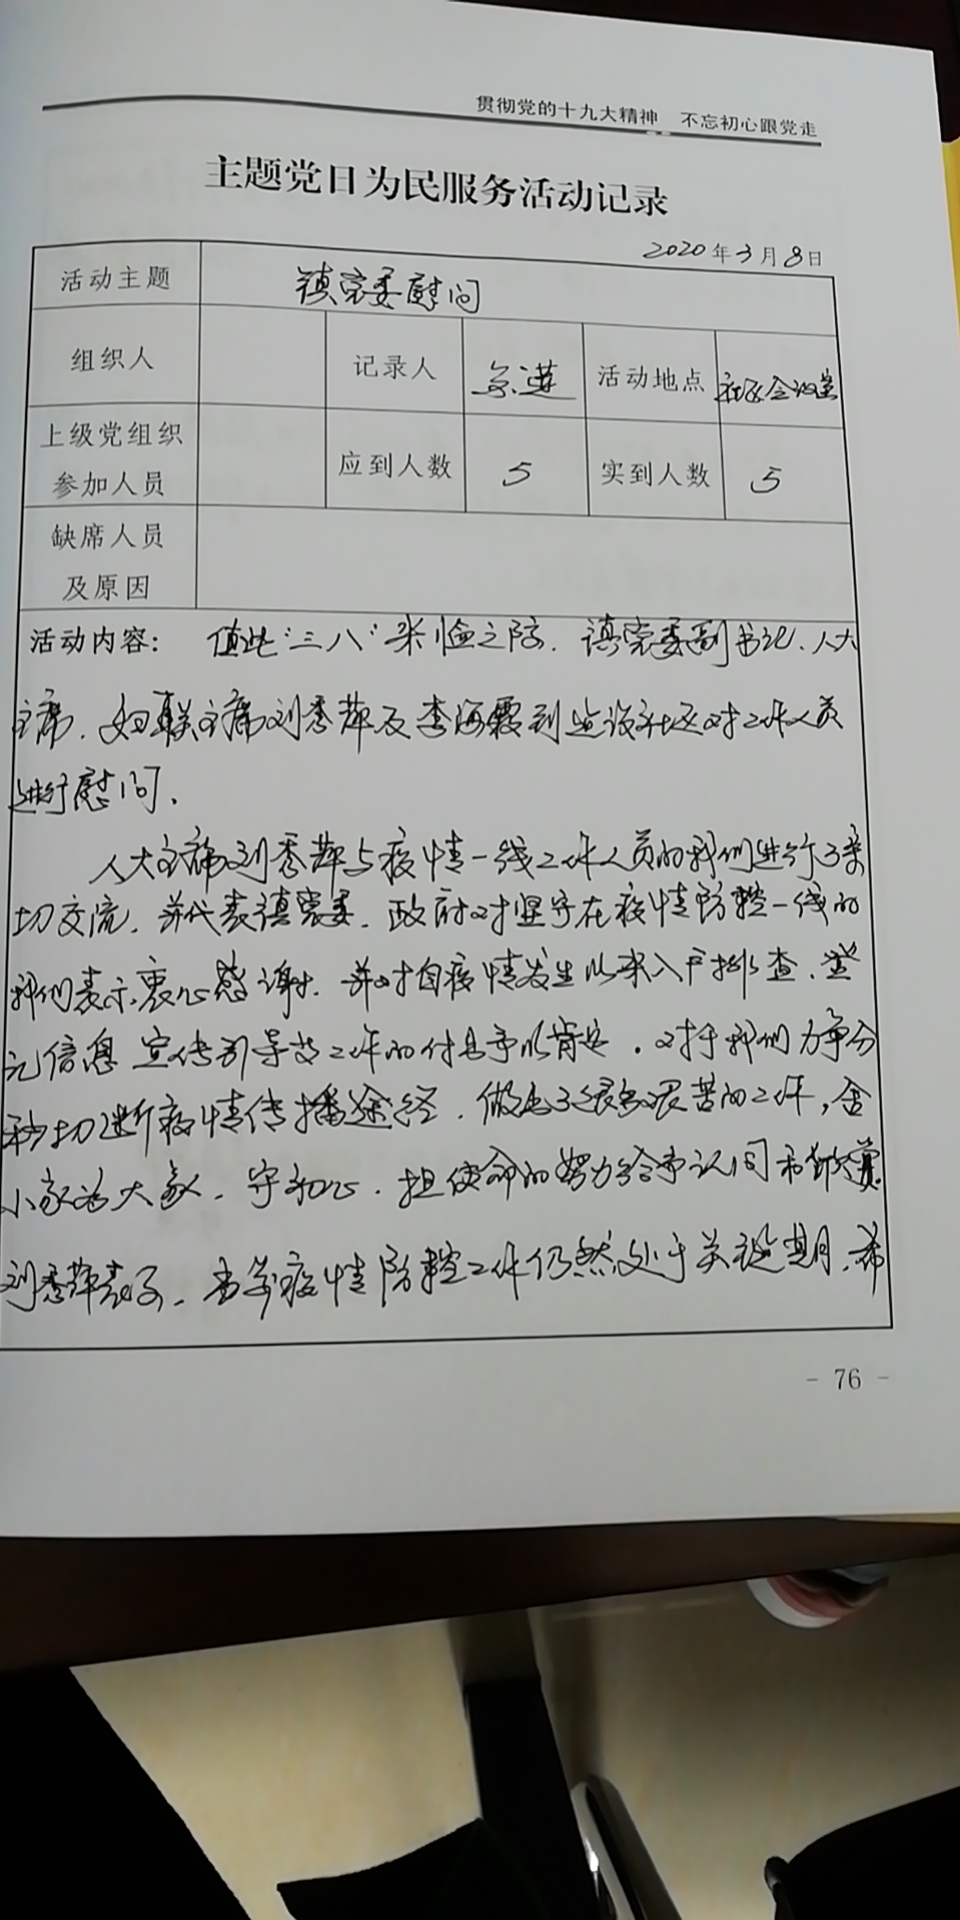 贯彻党的十九大精神 不忘初心跟党走
主题党日为民服务活动记录
2020年3月8日
活动主题 镇党委慰问
组织人 记录人 活动地点 社区会议室
上级党组织
参加人员 应到人数 5 实到人数 5
缺席人员
及原因
活动内容: 值此“三八”来临之际.镇党委副书记、人大
主席.妇联主席刘秀萍及李海霞到建设社区对工作人员
进行慰问.
人大主席刘秀萍与疫情一线工作人员的我们进行了亲
切交流.并代表镇党委.政府对坚守在疫情防控一线的
我们表示衷心感谢.并对自疫情发生以来入户排查.登
记信息 宣传引导等工作的付出予以肯定.对于我们力争分
秒切断疫情传播途径.做出了很多艰苦的工作,舍
小家为大家.守初心.担使命的努力给予认同和欣赏
刘秀萍表示.当前疫情防控工作仍然处于关键期.希
- 76 -